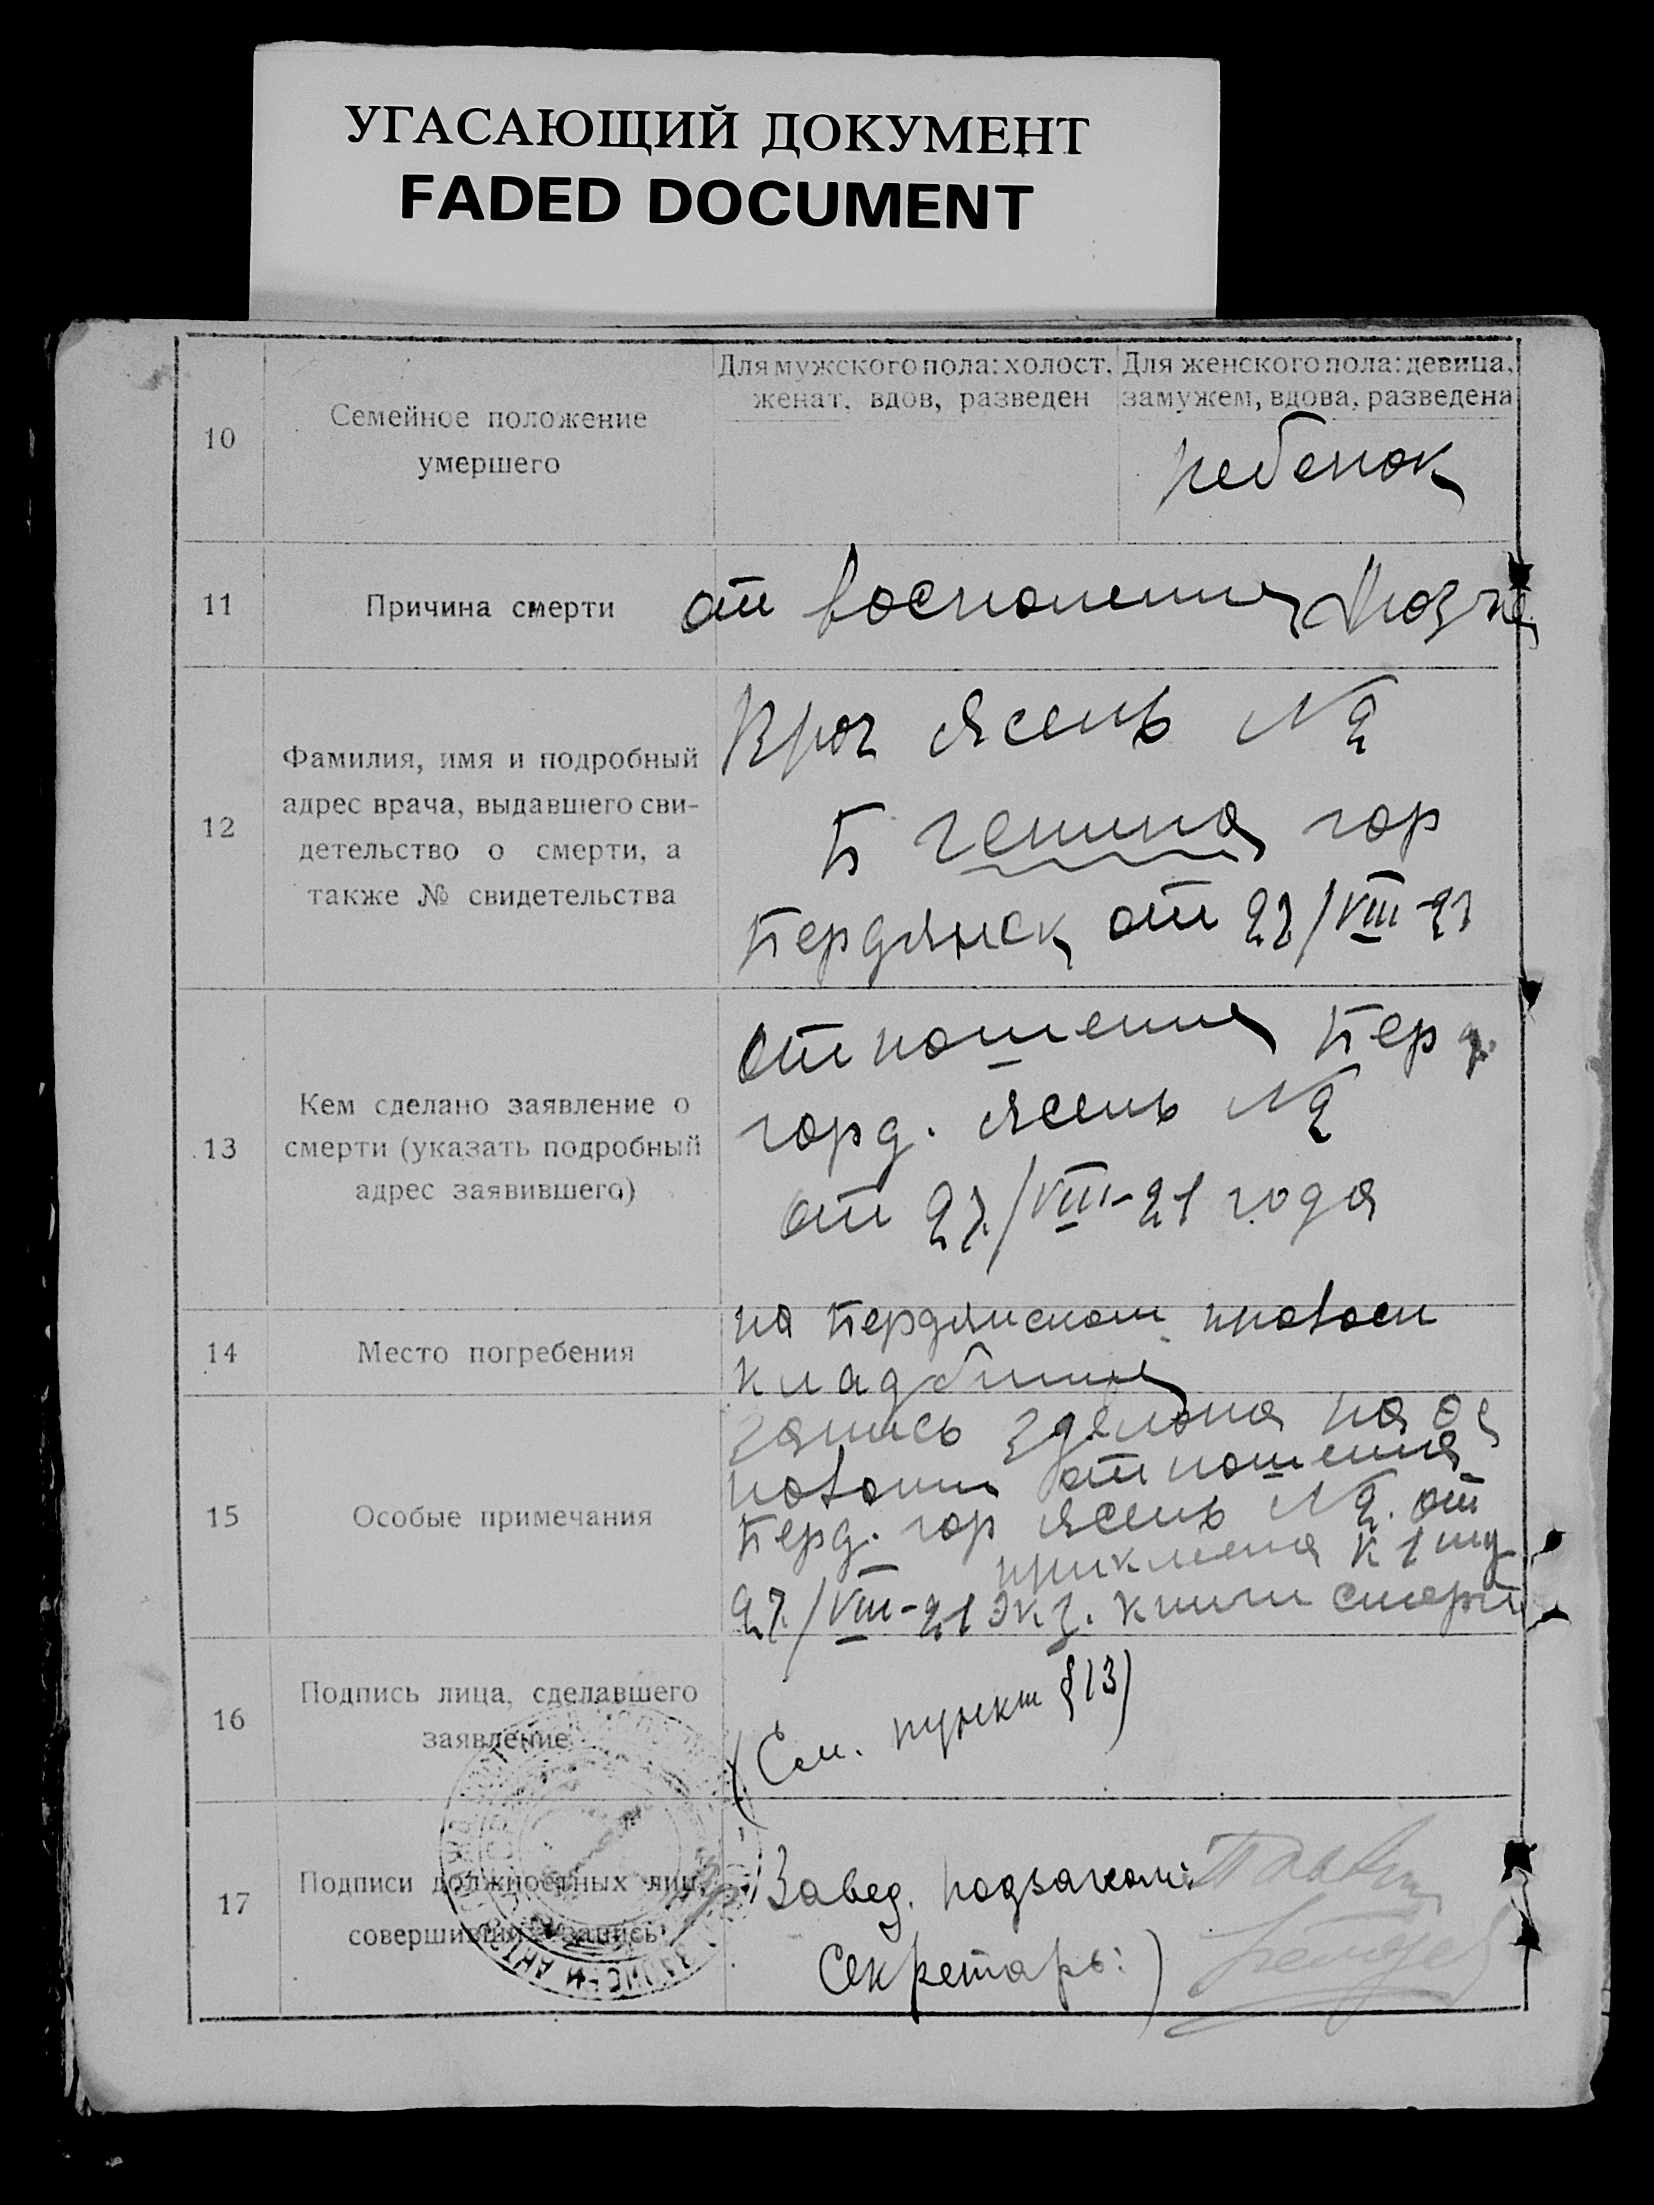 УГАСАЮЩИЙ ДОКУМЕНТ
FADED DOCUMENT
10
Семейное положение
умершего
Для мужского пола: холост,
женат, вдов, разведен
Для женского пола: девица,
замужем, вдова, разведена
ребенок
11
Причина смерти
от воспаления мозга
12
Фамилия, имя и подробный
адрес врача, выдавшего сви-
детельство о смерти, а
также № свидетельства
Врач Яслей № 2
гор
Бердянск от 27/VIII-21
13
Кем сделано заявление о
смерти (указать подробный
адрес заявившего)
отношение Берд.
горд. Яслей № 2
от 27/VIII-21 года
14
Место погребения
на Бердянском
кладбище
15
Особые примечания
запись зделана на ос
новании отношения
Берд. гор Яслей № 2. от
к 1 му
27/VIII-21 экз. книги смерти
16
Подпись лица, сделавшего
заявление
(См. пункт §13)
17
Подписи должностных лиц,
совершивших запись
Завед. подзагсом:
Секретарь: